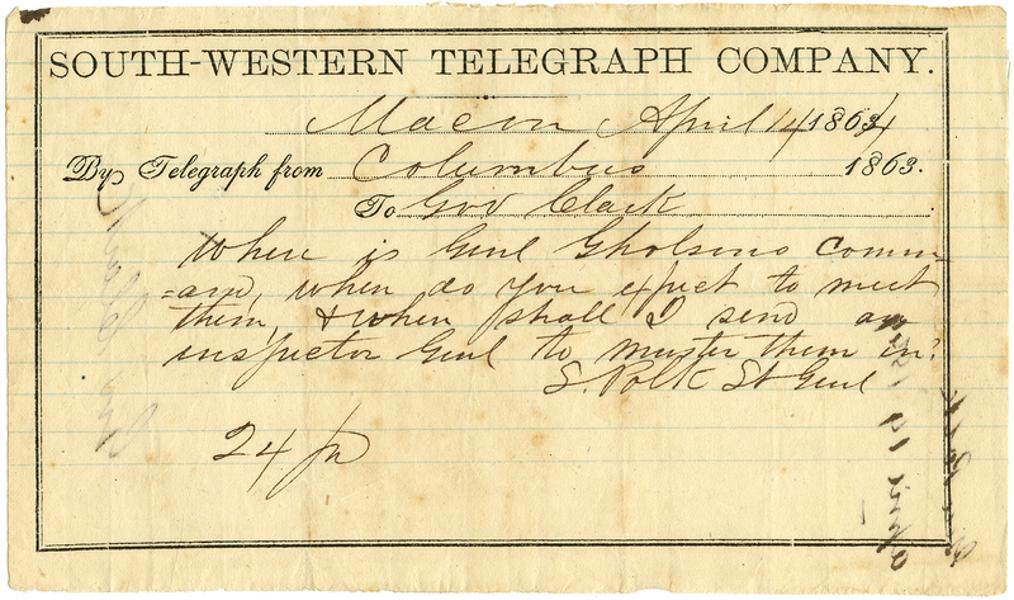 SOUTH-WESTERN TELEGRAPH COMPANY.
Macon April 14 1864
By Telegraph from Columbus 1863.
To Gov Clark
Where is Genl Gholsons Comm-
=and, when do you expect to meet
them, & when shall I send an
inspector Genl to muster them in?
L. Polk Lt Genl
24 pd